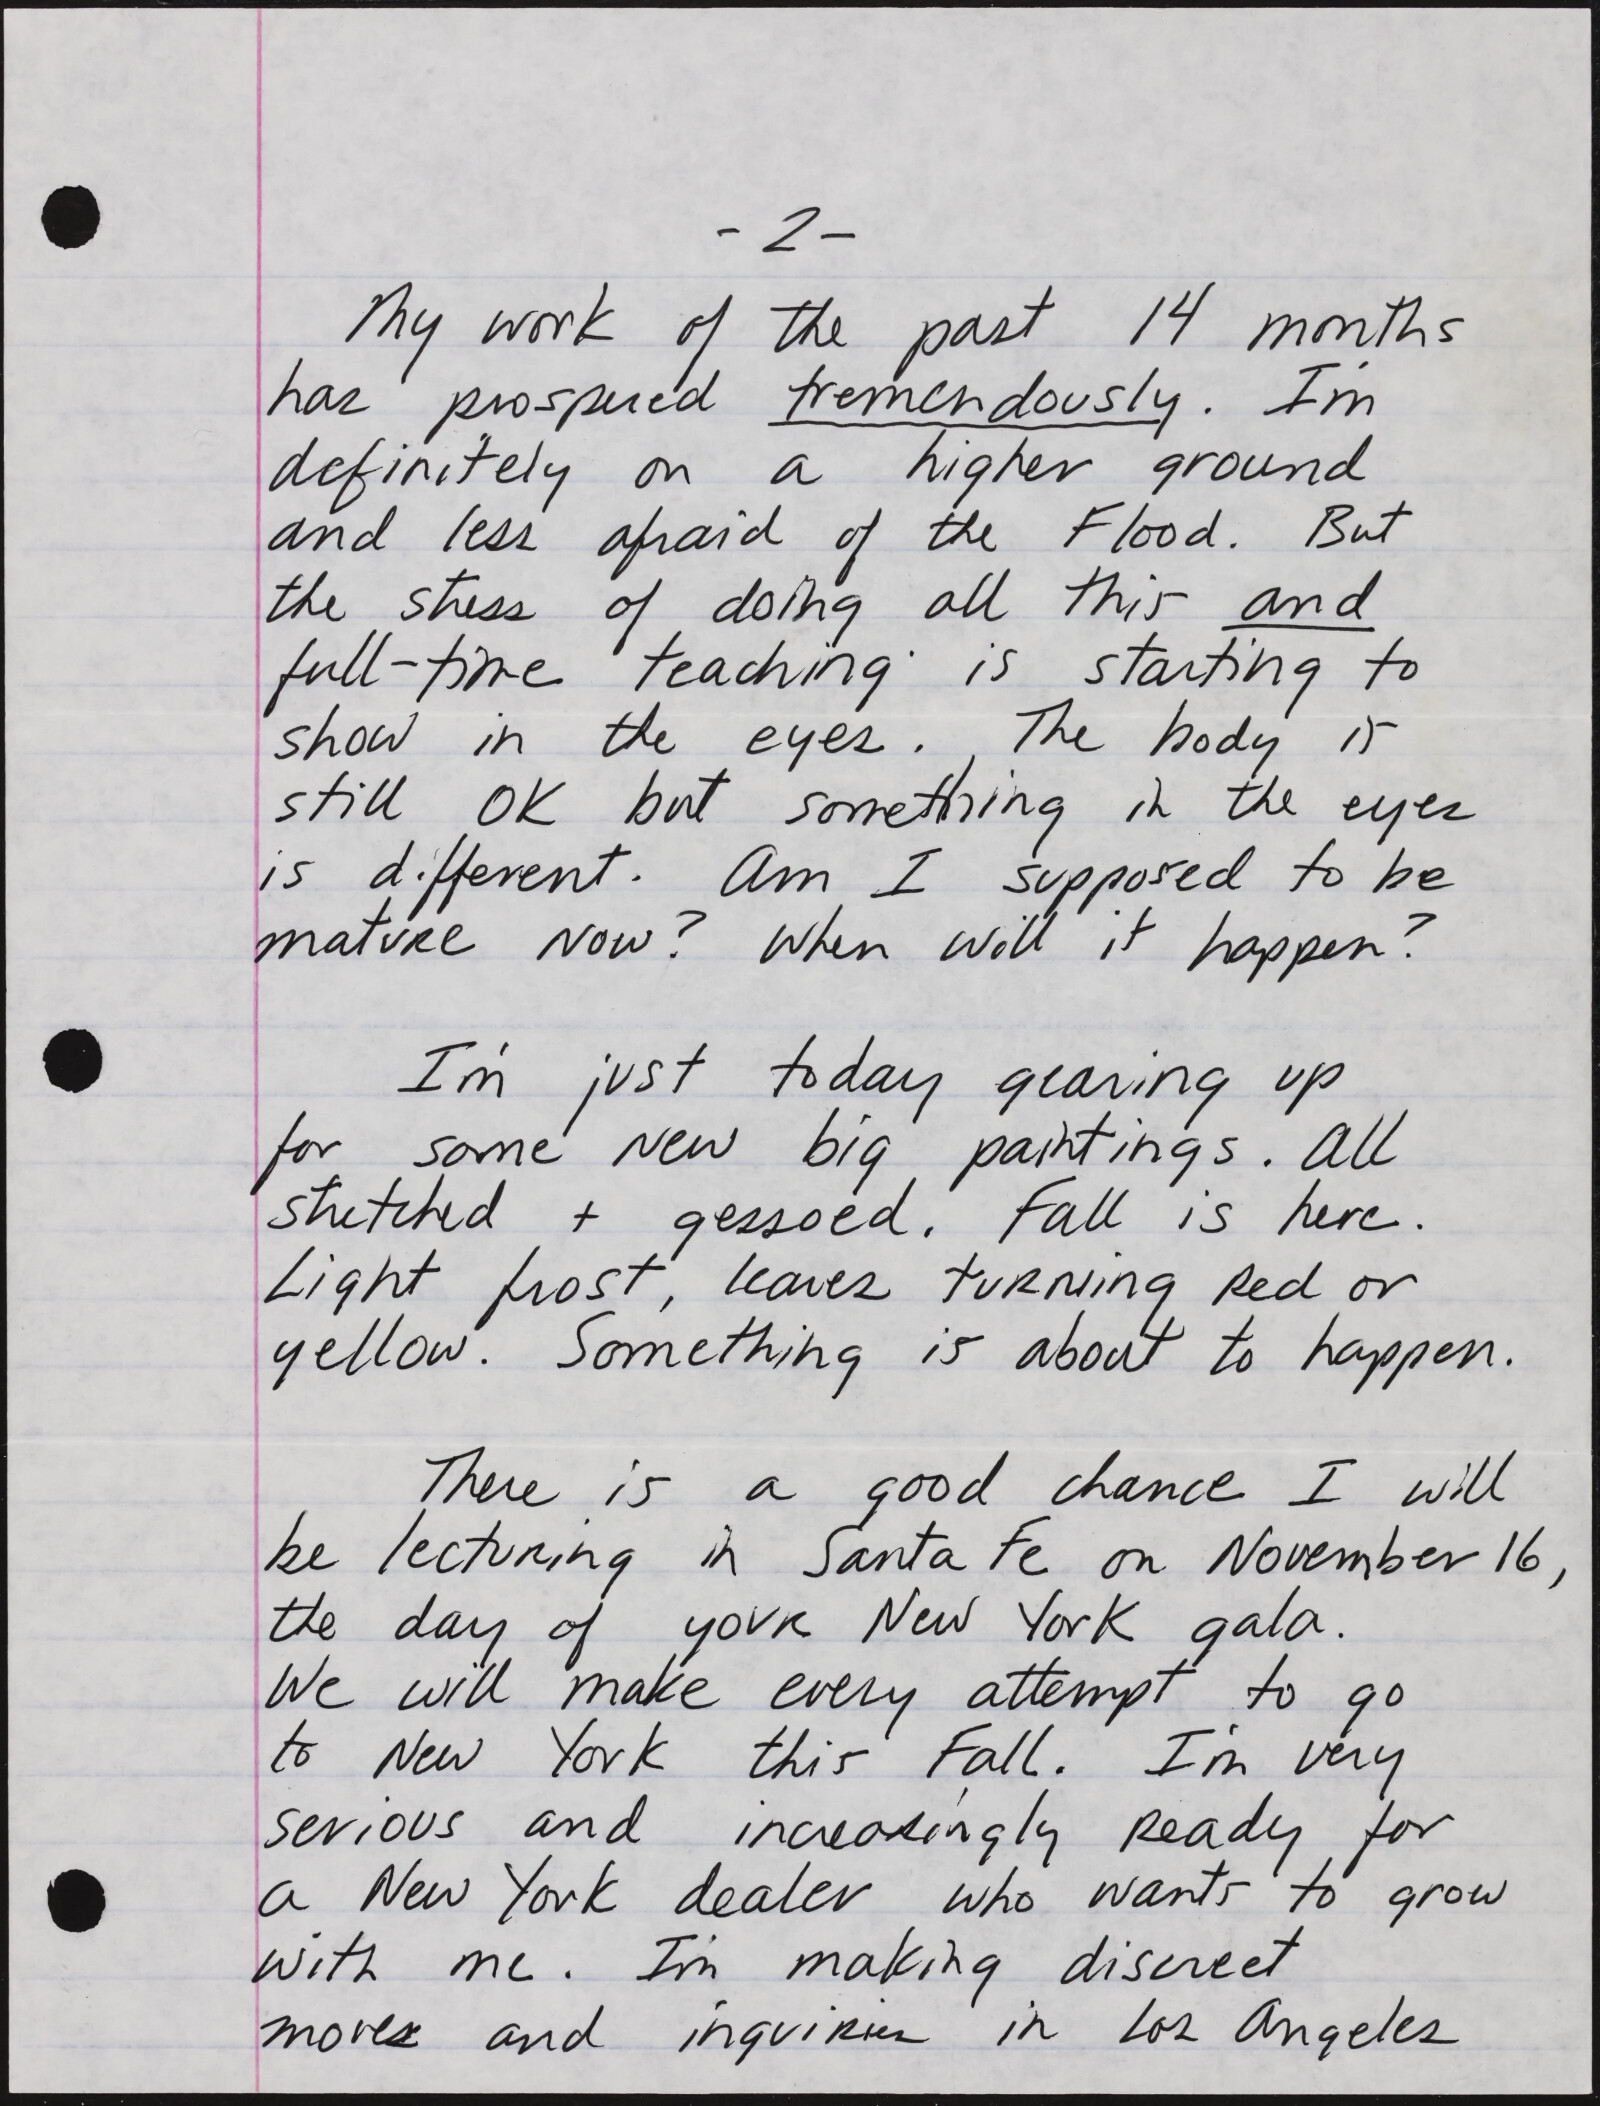 - 2 -
My work of the past 14 months
has prospered tremendously. I'm
definitely on a higher ground
and less afraid of the Flood. But
the stress of doing all this and
full-time teaching is starting to
show in the eyes. The body is
still OK but something in the eyes
is different. Am I supposed to be
mature now? When will it happen?
I'm just today gearing up
for some new big paintings. All
stretched + gessoed. Fall is here.
Light frost, leaves turning red or
yellow. Something is about to happen.
There is a good chance I will
be lecturing in Santa Fe on November 16,
the day of your New York gala.
We will make every attempt to go
to New York this Fall. I'm very
serious and increasingly ready for
a New York dealer who wants to grow
with me. I'm making discreet
moves and inquiries in Los Angeles